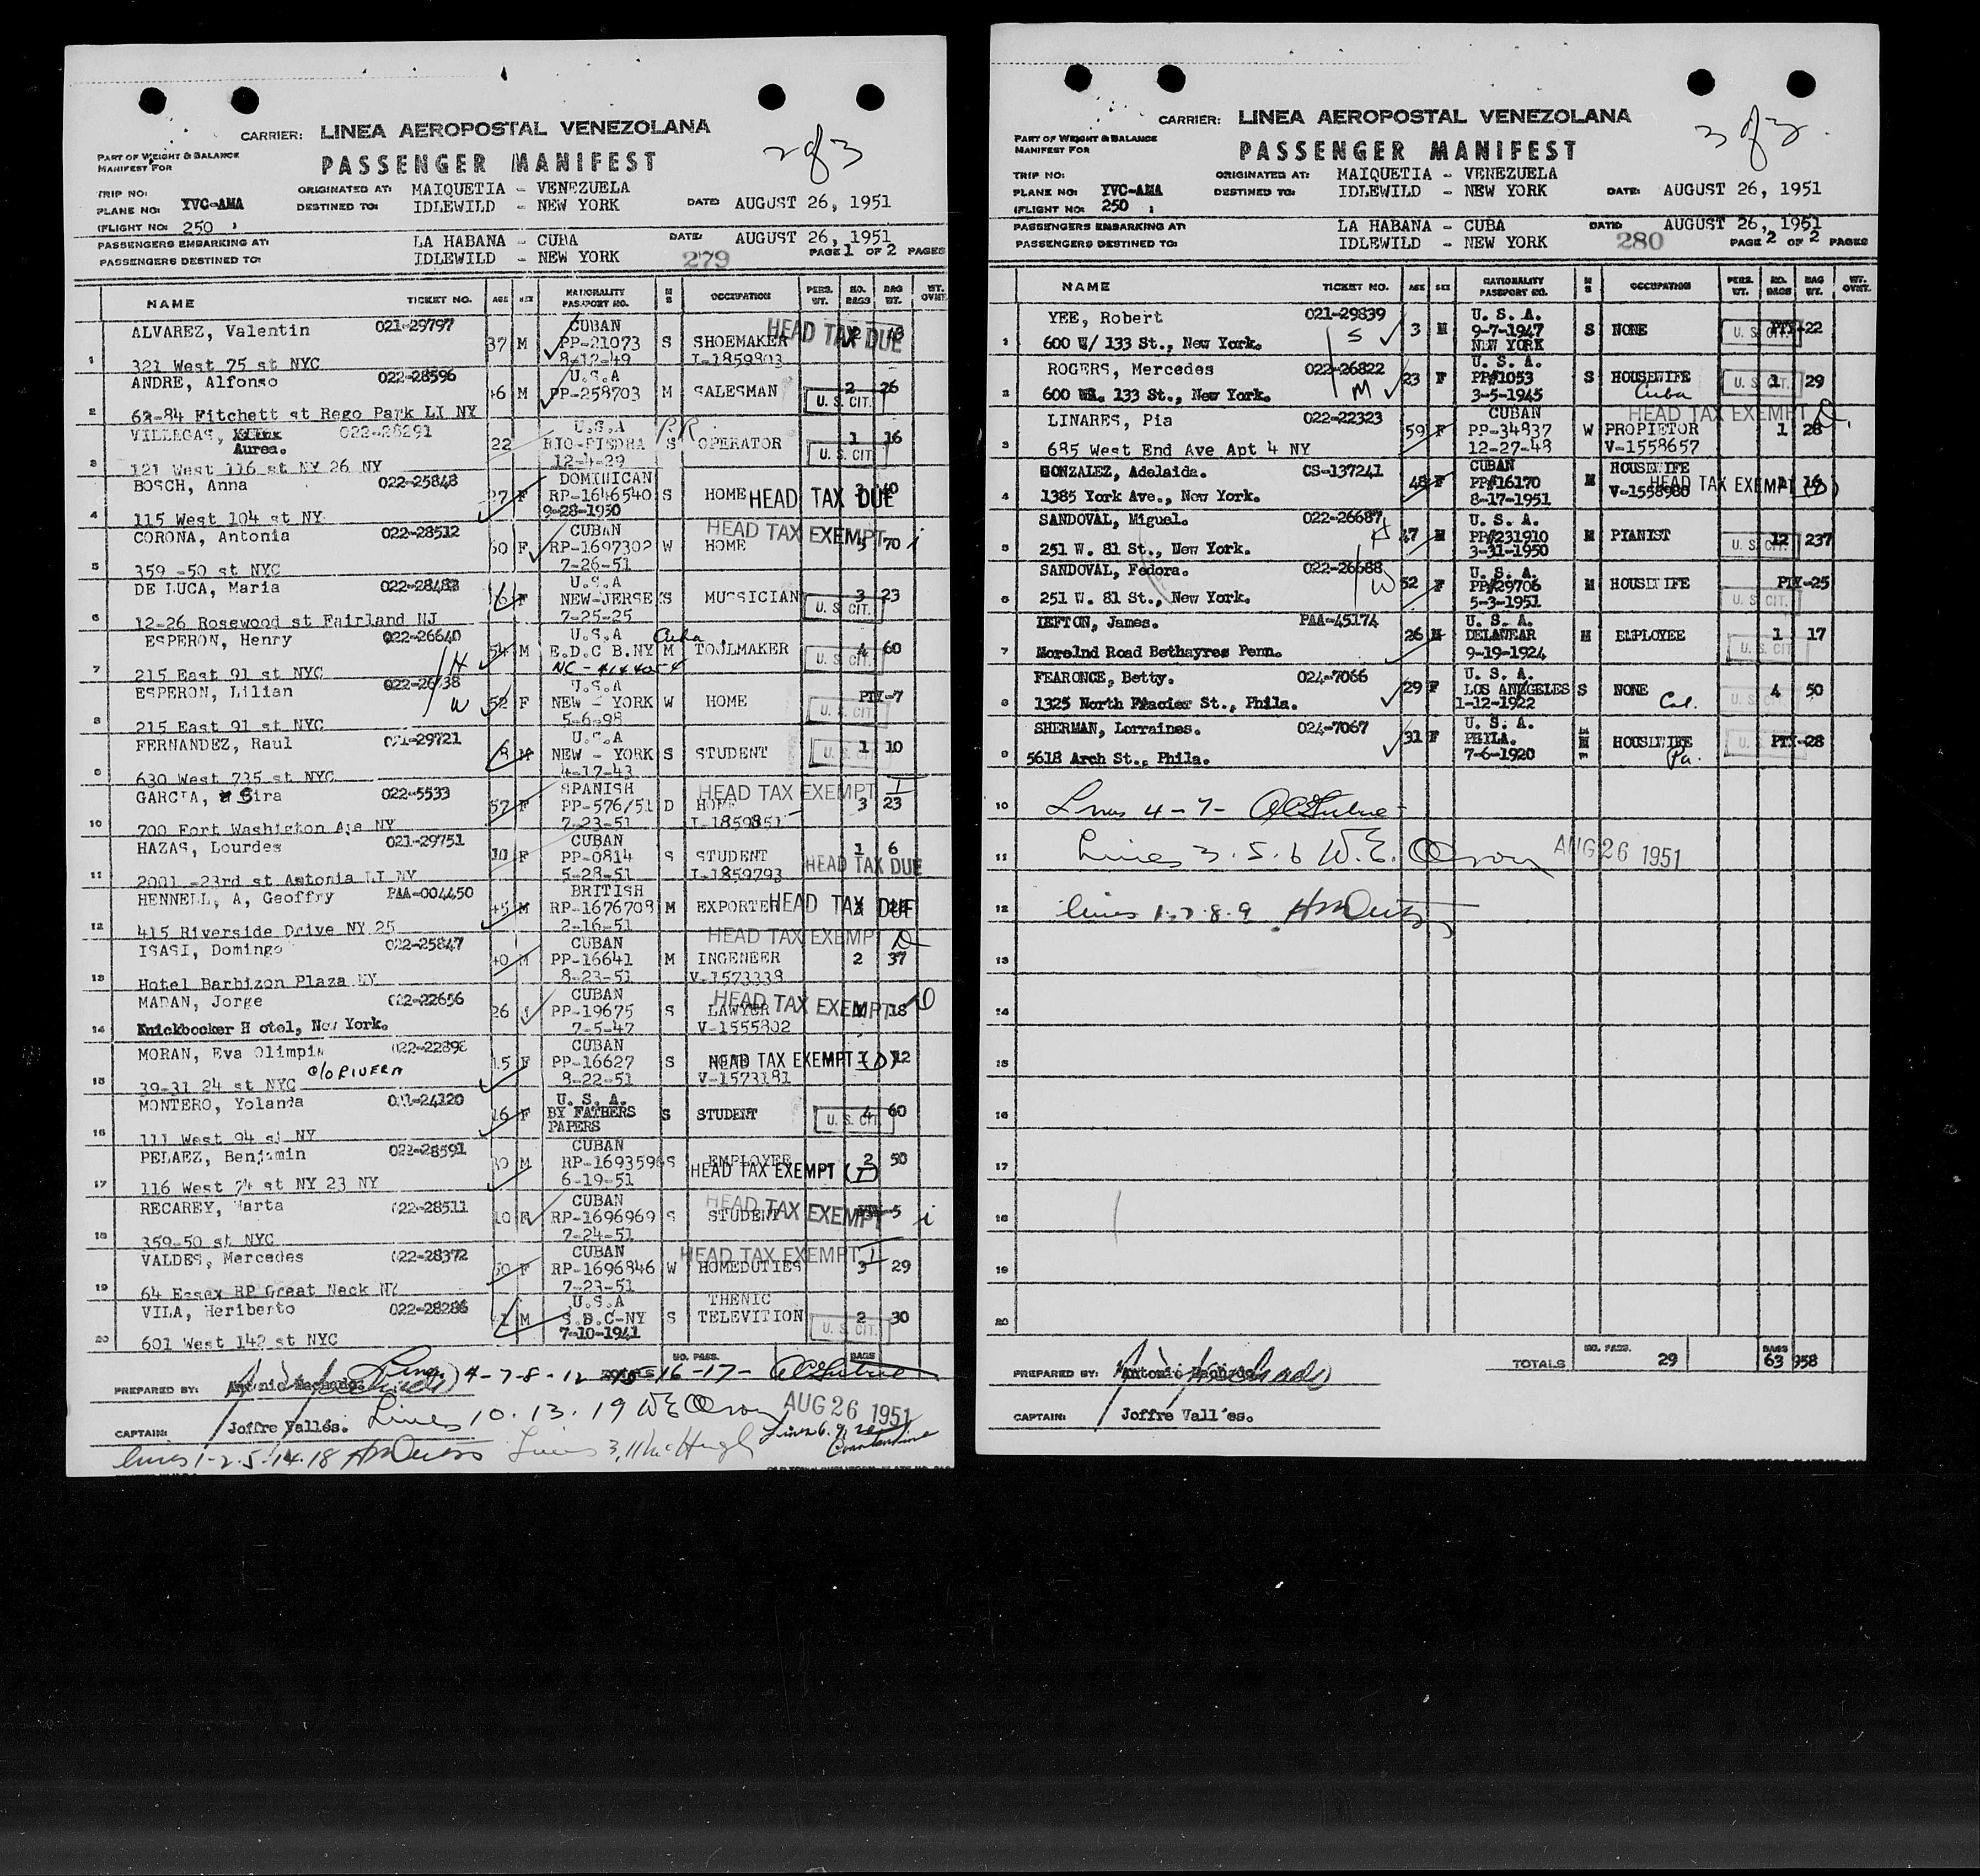 CARRIER: LINEA AEROPOSTAL VENEZOLANA
2 of 3
PART OF WEIGHT & BALANCE
MANIFEST FOR
PASSENGER MANIFEST
TRIP NO:
ORIGINATED AT: MAIQUETIA - VENEZUELA
PLANE NO: YVC-AMA
DESTINED TO: IDLEWILD - NEW YORK
DATE: AUGUST 26, 1951
(FLIGHT NO: 250 )
PASSENGERS EMBARKING AT: LA HABANA - CUBA DATE: AUGUST 26, 1951
PASSENGERS DESTINED TO: IDLEWILD - NEW YORK 279 PAGE 1 OF 2 PAGES
NAME TICKET NO. AGE SEX NATIONALITY PASSPORT NO. M S OCCUPATION PERS. WT. NO. BAGS BAG WT. WT. OVWT.
ALVAREZ, Valentin 021-29797 CUBAN HEAD TAX DUE
37 M PP-21073 S SHOEMAKER
1 321 West 75 st NYC 8-12-49 I-1859803
ANDRE, Alfonso 022-28596 U.S.A
46 M PP-258703 M SALESMAN 2 26
2 62-84 Fitchett st Rego Park LI NY U. S. CIT.
VILLEGAS, Aurea. 022-28291 U.S.A PR
22 RIO-PIEDRA S OPERATOR 1 16
3 121 West 116 st NY 26 NY 12-4-29 U. S. CIT.
BOSCH, Anna 022-25848 DOMINICAN
27 F RP-1646540 S HOME HEAD TAX DUE
4 115 West 104 st NY 9-28-1950
CORONA, Antonia 022-28512 CUBAN HEAD TAX EXEMPT i
60 F RP-1697302 W HOME 70
5 359 -50 st NYC 7-26-51
DE LUCA, Maria 022-28483 U.S.A
F NEW-JERSE S MUSSICIAN 3 23
6 12-26 Rosewood st Fairland NJ 7-25-25 U. S. CIT.
ESPERON, Henry 022-26640 U.S.A Cuba
H 54 M E.D.C B.NY M TOOLMAKER 4 60
7 215 East 91 st NYC U. S. CIT.
ESPERON, Lilian U.S.A
W 52 F NEW - YORK W HOME PTY-7
8 215 East 91 st NYC 5-6-98 U. S. CIT.
FERNANDEZ, Raul 021-29721 U.S.A
8 M NEW - YORK S STUDENT 1 10
9 630 West 735 st NYC 4-17-43 U. S. CIT.
GARCIA, Sira 022-5533 SPANISH HEAD TAX EXEMPT I
57 F PP-576/51 D HOME 3 23
10 700 Fort Washigton Ave NY 7-23-51 I-1859851
HAZAS, Lourdes 021-29751 CUBAN
10 F PP-0814 S STUDENT 1 6
11 2001 -23rd st Astonia LI NY 5-28-51 I-1859793 HEAD TAX DUE
HENNELL, A, Geoffry PAA-004450 BRITISH
45 M RP-1676708 M EXPORTER HEAD TAX DUE
12 415 Riverside Drive NY 25 2-16-51
ISASI, Domingo 022-25847 CUBAN HEAD TAX EXEMPT D
40 M PP-16641 M INGENEER 2 37
13 Hotel Barbizon Plaza NY 8-23-51 V-1573338
MADAN, Jorge 022-22656 CUBAN HEAD TAX EXEMPT D
26 PP-19675 S LAWYER 18
14 Knickbocker Hotel, New York. 7-5-47 V-1555802
MORAN, Eva Olimpia 022-22896 CUBAN
c/o RIVERA 15 F PP-16627 S HEAD TAX EXEMPT (D) 12
15 39-31 24 st NYC 8-22-51 V-1573181
MONTERO, Yolanda 021-24120 U. S. A.
16 F BY FATHERS S STUDENT 4 60
16 111 West 94 st NY PAPERS U. S. CIT.
PELAEZ, Benjamin 022-28591 CUBAN
30 M RP-1693596 S EMPLOYEE 2 50
17 116 West 74 st NY 23 NY 6-19-51 HEAD TAX EXEMPT (I)
RECAREY, Marta 022-28511 CUBAN HEAD TAX EXEMPT
10 F RP-1696969 S STUDENT 5 i
18 359-50 st NYC 7-24-51
VALDES, Mercedes 022-28372 CUBAN HEAD TAX EXEMPT I
50 F RP-1696846 W HOMEDUTIES 3 29
19 64 Essex RP Great Neck NY 7-23-51
VILA, Heriberto 022-28286 U.S.A THENIC
41 M S.B.C-NY S TELEVITION 2 30
20 601 West 142 st NYC 7-10-1941 U. S. CIT.
NO. PASS. BAGS
PREPARED BY: Antonio Machado. Lines 4-7-8-12 16-17-
Lines 10. 13. 19 W E Olson AUG 26 1951
CAPTAIN: Joffre Vallés.
lines 1-2-5-14-18 Lines 3, 11 McHugh Lines 6. 9. 20
CARRIER: LINEA AEROPOSTAL VENEZOLANA
3 of 3
PART OF WEIGHT & BALANCE
MANIFEST FOR
PASSENGER MANIFEST
TRIP NO:
ORIGINATED AT: MAIQUETIA - VENEZUELA
PLANE NO: YVC-AMA
DESTINED TO: IDLEWILD - NEW YORK
DATE: AUGUST 26, 1951
(FLIGHT NO: 250 )
PASSENGERS EMBARKING AT: LA HABANA - CUBA DATE: AUGUST 26, 1951
PASSENGERS DESTINED TO: IDLEWILD - NEW YORK 280 PAGE 2 OF 2 PAGES
NAME TICKET NO. AGE SEX NATIONALITY PASSPORT NO. M S OCCUPATION PERS. WT. NO. BAGS BAG WT. WT. OVWT.
YEE, Robert 021-29839 U. S. A.
S 3 M 9-7-1947 S NONE U. S. CIT. PTY-22
1 600 W/ 133 St., New York. NEW YORK
ROGERS, Mercedes 022-26822 U. S. A.
M 23 F PP#1053 S HOUSEWIFE U. S. CIT. 1 29
2 600 W. 133 St., New York. 3-5-1945 Cuba
LINARES, Pia 022-22323 CUBAN HEAD TAX EXEMPT D.
59 F PP-34837 W PROPIETOR 1 28
3 685 West End Ave Apt 4 NY 12-27-48 V-1558657
GONZALEZ, Adelaida. CS-137241 CUBAN HOUSEWIFE
48 F PP#16170 M HEAD TAX EXEMPT (D) 16
4 1385 York Ave., New York. 8-17-1951 V-1558980
SANDOVAL, Miguel. 022-26687 U. S. A.
H 47 M PP#231910 M PIANIST 12 237
5 251 W. 81 St., New York. 3-31-1950 U. S. CIT.
SANDOVAL, Fedora. 022-26688 U. S. A.
W 52 F PP#29706 M HOUSEWIFE PTY-25
6 251 W. 81 St., New York. 5-3-1951 U. S. CIT.
LEFTON, James. PAA-45174 U. S. A.
26 M DELAWEAR M EMPLOYEE 1 17
7 Morelnd Road Bethayres Penn. 9-19-1924 U. S. CIT
FEARONCE, Betty. 024-7066 U. S. A.
29 F LOS ANGELES S NONE 4 50
8 1325 North Fracier St., Phila. 1-12-1922 Cal.
SHERMAN, Lorraines. 024-7067 U. S. A.
31 F PHILA. HOUSEWIFE PTY-28
9 5618 Arch St., Phila. 7-6-1920 Pa.
10 Lines 4-7-
11 Lines 3. 5. 6 W. E. Olson AUG 26 1951
12 lines 1. 2. 8. 9
13
14
15
16
17
18
19
20
TOTALS NO. PASS. 29 BAGS 63 958
PREPARED BY: Antonio Machado
CAPTAIN: Joffre Vall´es.